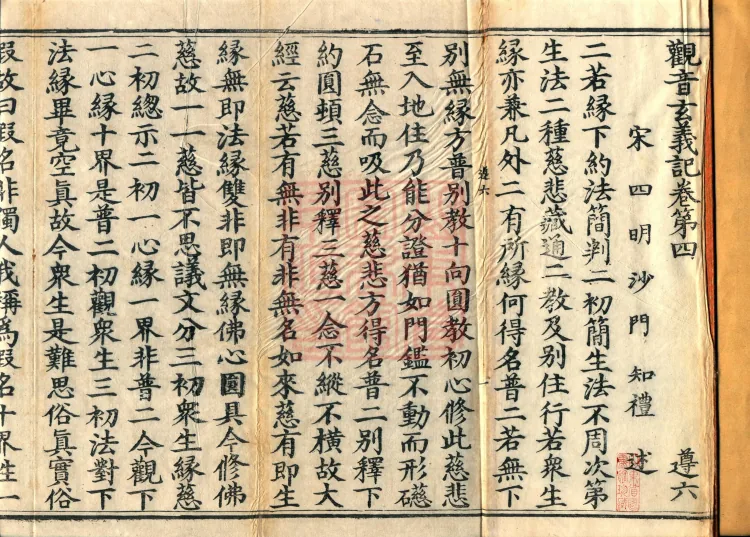 觀音玄義記卷第四 遵六
宋四明沙門 知禮 述
二若緣下約法簡判二初簡生法不周次第
生法二種慈悲藏通二教及別住行若衆生
緣亦兼凡外二有所緣何得名普二若無下
別無緣方普別教十向圓教初心修此慈悲
至入地住乃能分證猶如門鑑不動而形礠
石無念而吸此之慈悲方得名普二別釋下
約圓頓三慈別釋三慈一念不縱不橫故大
經云慈若有無非有非無名如來慈有即生
緣無即法緣雙非即無緣佛心圓具今修佛
慈故一一慈皆不思議文分三初衆生緣慈
二初總示二初一心緣一界非普二今觀下
一心緣十界是普二初觀衆生三初法對下
法緣畢竟空眞故今衆生是難思俗眞實俗
假故曰假名非獨人我稱爲假名十界生一
遵六